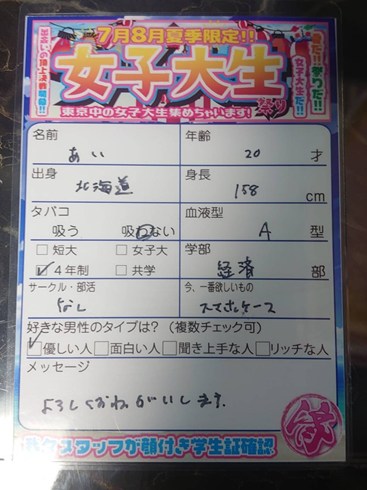 7月8月夏季限定!!
女子大生
祭り
東京中の女子大生集めちゃいます!
女子大生だ!!
名前 あい 年齢 20 才
出身 北海道 身長 158 cm
タバコ 吸う 吸わない 血液型 A 型
□短大 □女子大 学部
☑4年制 □共学 経済 部
サークル・部活 今、一番欲しいもの
なし スマホケース
好きな男性のタイプは?(複数チェック可)
☑優しい人 □面白い人 □聞き上手な人 □リッチな人
メッセージ
よろしくおねがいします。
スタッフが顔付き学生証確認